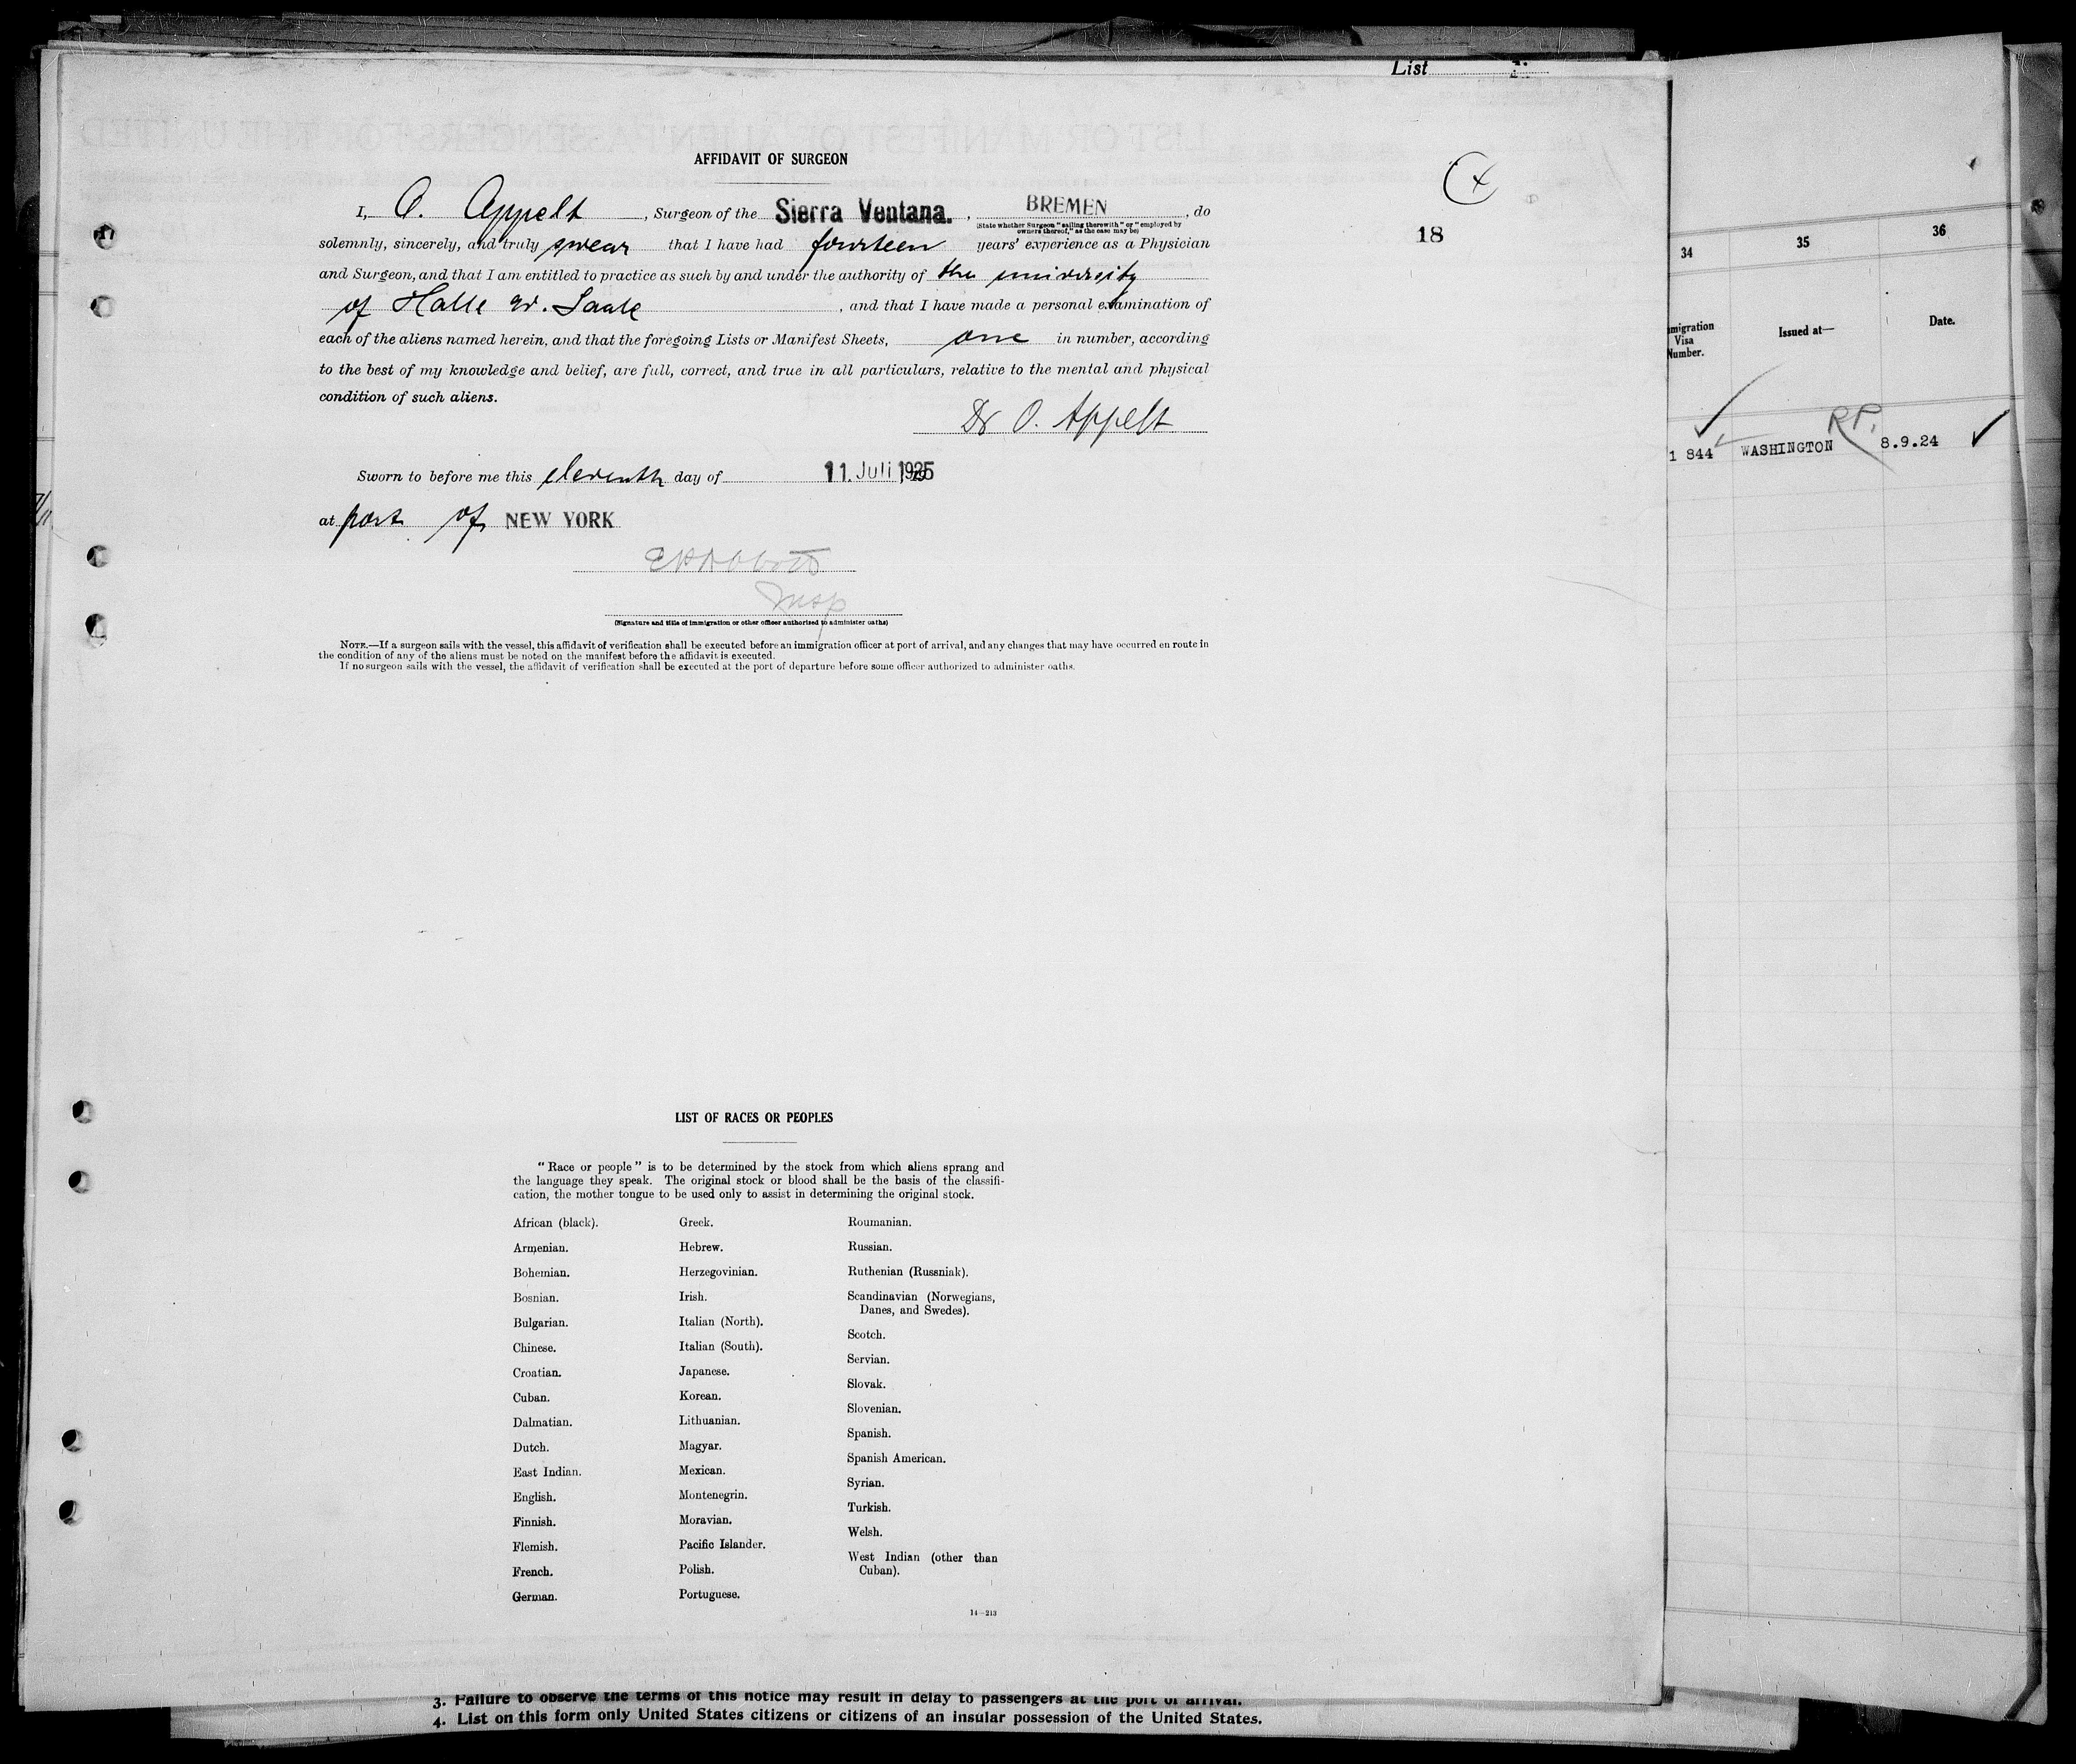 List
AFFIDAVIT OF SURGEON
I, O. Appelt, Surgeon of the Sierra Ventana., BREMEN, do
(State whether Surgeon "sailing therewith" or "employed by
owners thereof," as the case may be)
solemnly, sincerely, and truly swear that I have had fourteen years' experience as a Physician
and Surgeon, and that I am entitled to practice as such by and under the authority of the university
of Halle Saale, and that I have made a personal examination of
each of the aliens named herein, and that the foregoing Lists or Manifest Sheets, one in number, according
to the best of my knowledge and belief, are full, correct, and true in all particulars, relative to the mental and physical
condition of such aliens.
Dr O. Appelt
Sworn to before me this eleventh day of 11. Juli 1925
at port of NEW YORK
Insp
(Signature and title of immigration or other officer authorized to administer oaths)
NOTE.—If a surgeon sails with the vessel, this affidavit of verification shall be executed before an immigration officer at port of arrival, and any changes that may have occurred en route in
the condition of any of the aliens must be noted on the manifest before the affidavit is executed.
If no surgeon sails with the vessel, the affidavit of verification shall be executed at the port of departure before some officer authorized to administer oaths.
18
34
35
36
migration
Visa
Number.
Issued at—
Date.
RP.
1 844 WASHINGTON 8.9.24
LIST OF RACES OR PEOPLES
"Race or people" is to be determined by the stock from which aliens sprang and
the language they speak. The original stock or blood shall be the basis of the classifi-
cation, the mother tongue to be used only to assist in determining the original stock.
African (black).
Armenian.
Bohemian.
Bosnian.
Bulgarian.
Chinese.
Croatian.
Cuban.
Dalmatian.
Dutch.
East Indian.
English.
Finnish.
Flemish.
French.
German.
Greek.
Hebrew.
Herzegovinian.
Irish.
Italian (North).
Italian (South).
Japanese.
Korean.
Lithuanian.
Magyar.
Mexican.
Montenegrin.
Moravian.
Pacific Islander.
Polish.
Portuguese.
Roumanian.
Russian.
Ruthenian (Russniak).
Scandinavian (Norwegians,
Danes, and Swedes).
Scotch.
Servian.
Slovak.
Slovenian.
Spanish.
Spanish American.
Syrian.
Turkish.
Welsh.
West Indian (other than
Cuban).
14—213
3. Failure to observe the terms of this notice may result in delay to passengers at the port of arrival.
4. List on this form only United States citizens or citizens of an insular possession of the United States.